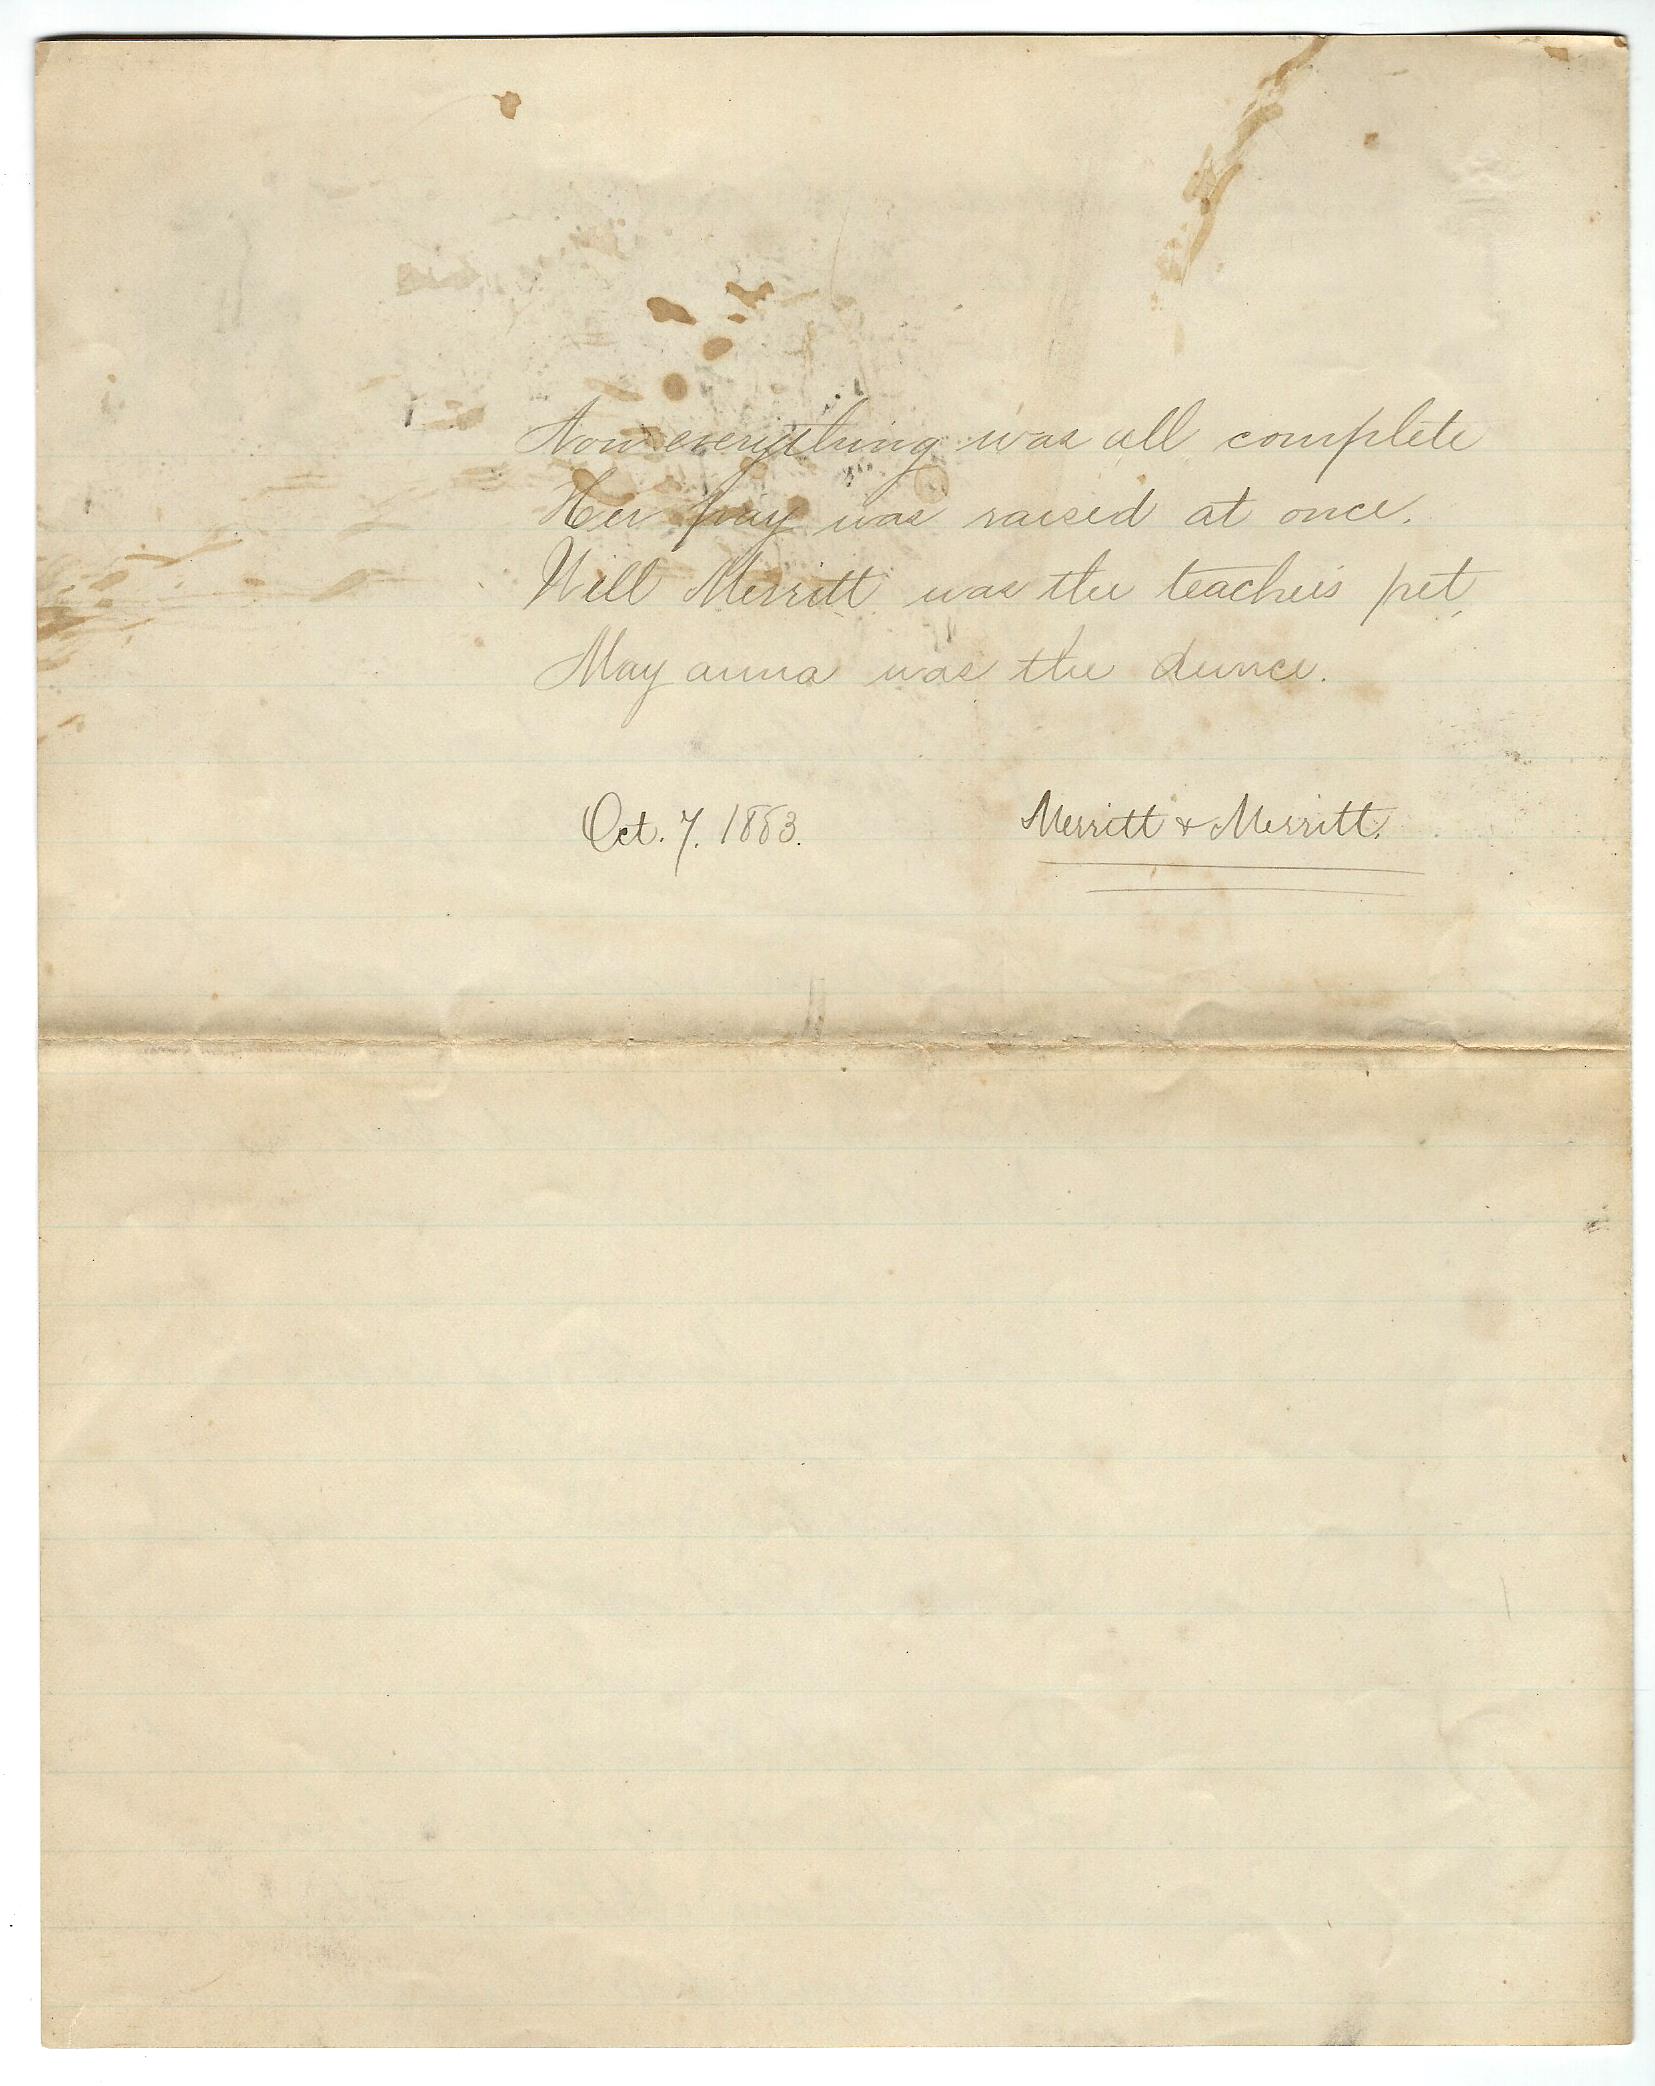 Now everything was all complete
Her pay was raised at once.
Will Merritt was the teachers pet,
May anna was the dunce.
Oct. 7. 1883. Merritt & Merritt.